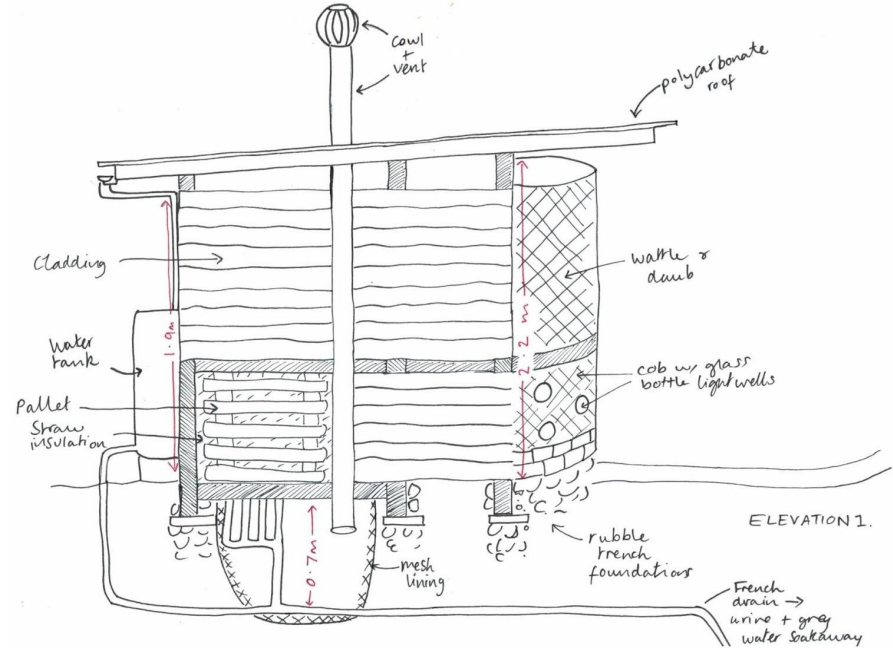 cowl
+
vent
polycarbonate
roof
Cladding
wattle &
daub
1.9m
2.2 m
Water
tank
cob w/ glass
bottle lightwells
Pallet
Straw
insulation
ELEVATION 1.
rubble
trench
foundations
0.7m
mesh
lining
French
drain →
urine + grey
water soakaway